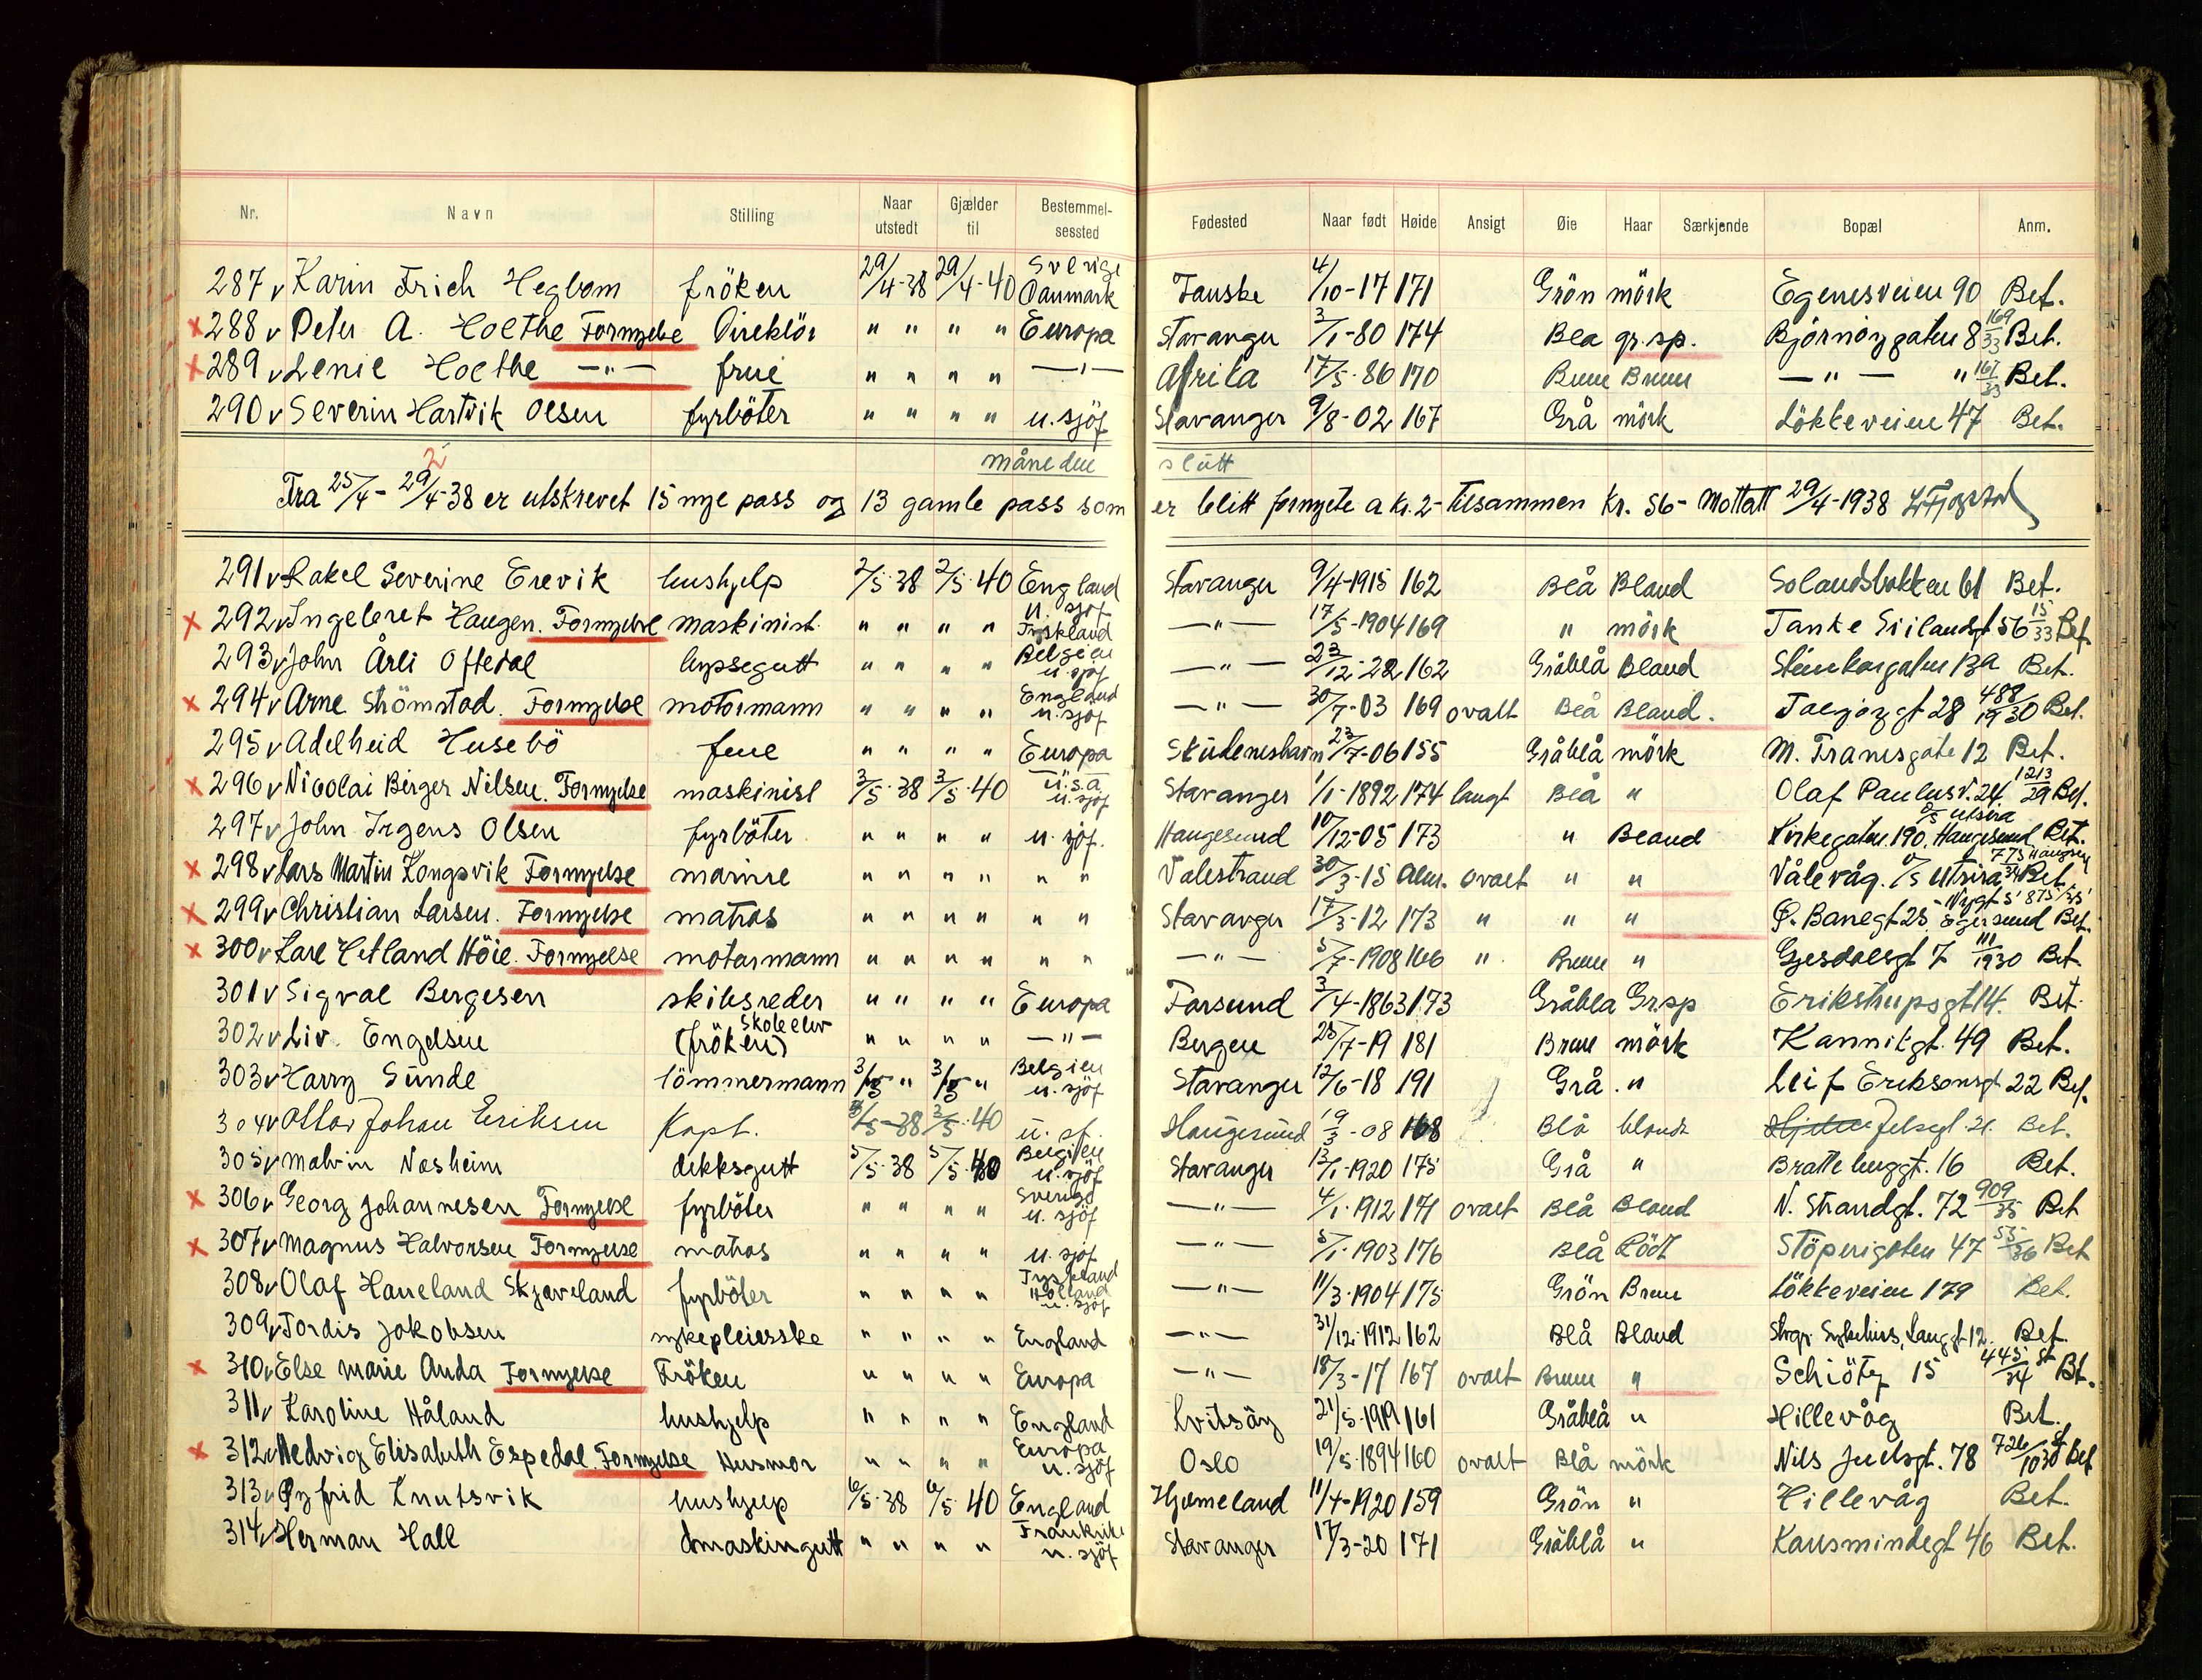 Nr. Navn Stilling Naar utstedt Gjælder til Bestemmel-sessted Fødested Naar født Høide Ansigt Øie Haar Særkjende Bopæl Anm.
287 v Karin Frich Hegbom fröken 29/4-38 29/4-40 Sverige Danmark 4/10-17 171 Grön mörk Egenesveien 90 Bet.
x 288 v Peter A. Hoethe Fornyelse Direktör " " " " Europa Stavanger 3/1-80 174 Blå gr.sp. Bjørnøygaten 8 169/33 Bet.
x 289 v Lenie Hoethe —"— frue " " " " —"— Afrika 17/5-86 170 Brune Brune —"— " 161/33 Bet.
290 v Severin Hartvik Olsen fyrböter " " " " u. sjöf Stavanger 9/8-02 167 Grå mörk Lökkeveien 47 Bet.
2
måneden slutt
Fra 25/4- 29/4-38 er utskrevet 15 nye pass og 13 gamle pass som er blitt fornyete a kr. 2- tilsammen kr. 56- Mottatt 29/4-1938
291 v Rakel Severine Erevik hushjelp 2/5-38 2/5-40 England Stavanger 9/4-1915 162 Blå Bland Solandsbakken 61 Bet.
x 292 v Ingebret Haugen. Fornyelse maskinist " " " " u. sjöf Tyskland —"— 17/5-1904 169 " mörk Tanke Svilandsgt 56 15/33 Bet.
293 v John Årli Oftedal byssegutt " " " " Belgien u. sjöf —"— 23/12-22 162 Gråblå Bland Steinkargaten 13a Bet.
x 294 v Arne Strömstad. Fornyelse motormann " " " " England u. sjöf —"— 30/7-03 169 ovalt Blå Bland. 28 488/1930 Bet.
295 v Adelheid Husebö frue " " " " Europa Skudeneshavn 23/7-06 155 Gråblå mörk M. Transgate 12 Bet.
x 296 v Nicolai Birger Nilsen. Fornyelse maskinist 3/5-38 3/5-40 U.S.A. u. sjöf Stavanger 1/1-1892 174 langt Blå " Olaf Paulus v. 24 1213/29 Bet.
297 v John Irgens Olsen fyrböter " " " " u. sjöf. Haugesund 10/12-05 173 " Bland Kirkegaten 190. Haugesund Bet.
x 298 v Lars Martin Longsvik Fornyelse marine " " " " " " Valestrand 30/3-15 Alm. ovalt " " Vålevåg. Utsira Bet.
x 299 v Christian Larsen. Fornyelse matros " " " " " " Stavanger 17/3-12 173 " " " Ø. Banegt 25. Egersund Bet.
x 300 v Kare Hetland Höie. Fornyelse motormann " " " " " " —"— 5/7-1908 166 " Brune " Gjesdalsgt 7 111/1930 Bet.
301 v Sigval Bergesen skibsreder " " " " Europa Farsund 3/4-1863 173 Gråblå Gr.sp Eriksthupsgt 14. Bet.
302 v Liv. Engelsen Skoleelev (fröken) " " " " —"— Bergen 23/7-19 181 Brune mörk Kannikgt. 49 Bet.
303 v Harry Sunde tömmermann 3/5 " 3/5 " Belgien u. sjöf Stavanger 12/6-18 191 Grå " Leif Eriksonsgt 22 Bet.
304 v Ottar Johan Eriksen Kapt. 3/5-38 3/5-40 u. sf. Haugesund 19/3-08 168 Blå blondt Jelsegt. 21 Bet.
305 v Malvin Nesheim dekksgutt 5/5-38 5/5-40 Belgien u. sjöf Stavanger 13/1-1920 175 Grå " Brattebuggt. 16 Bet.
x 306 v Georg Johannesen Fornyelse fyrböter " " " " Sverige u. sjöf —"— 4/1-1912 171 ovalt Blå Bland N. Strandgt. 72 909/35 Bet
x 307 v Magnus Halvorsen Fornyelse matros " " " " u. sjöf —"— 5/1-1903 176 Blå Rödt Stöperigaten 47 53/36 Bet
308 v Olaf Haneland Skjæveland fyrböter " " " " Tyskland Holland u. sjöf —"— 11/3-1904 175 Grön Brune Lökkeveien 179 Bet.
309 v Tordis Jakobsen sykepleierske " " " " England —"— 31/12-1912 162 Blå Bland Stvgr. Sykehus, Langgt 12. Bet.
x 310 v Else Marie Anda Fornyelse Fröken " " " " Europa —"— 18/3-17 167 ovalt Brune " Schiötz 15 445/34 st Bet.
311 v Karoline Håland hushjelp " " " " England Kvitsöy 21/5-1919 161 Gråblå " Hillevåg Bet.
x 312 v Hedvig Elisabeth Espedal Fornyelse Husmor " " " " Europa u. sjöf Oslo 19/5-1894 160 ovalt Blå mörk Nils Juelsgt. 78 726/1930 st Bet
313 v Øyfrid Knutsvik hushjelp 6/5-38 6/5-40 England Hjelmeland 11/4-1920 159 Grön " Hillevåg Bet.
314 v Herman Hall maskingutt " " " " Frankrike u. sjöf Stavanger 17/3-20 171 Gråblå " Karsmindegt 46 Bet.